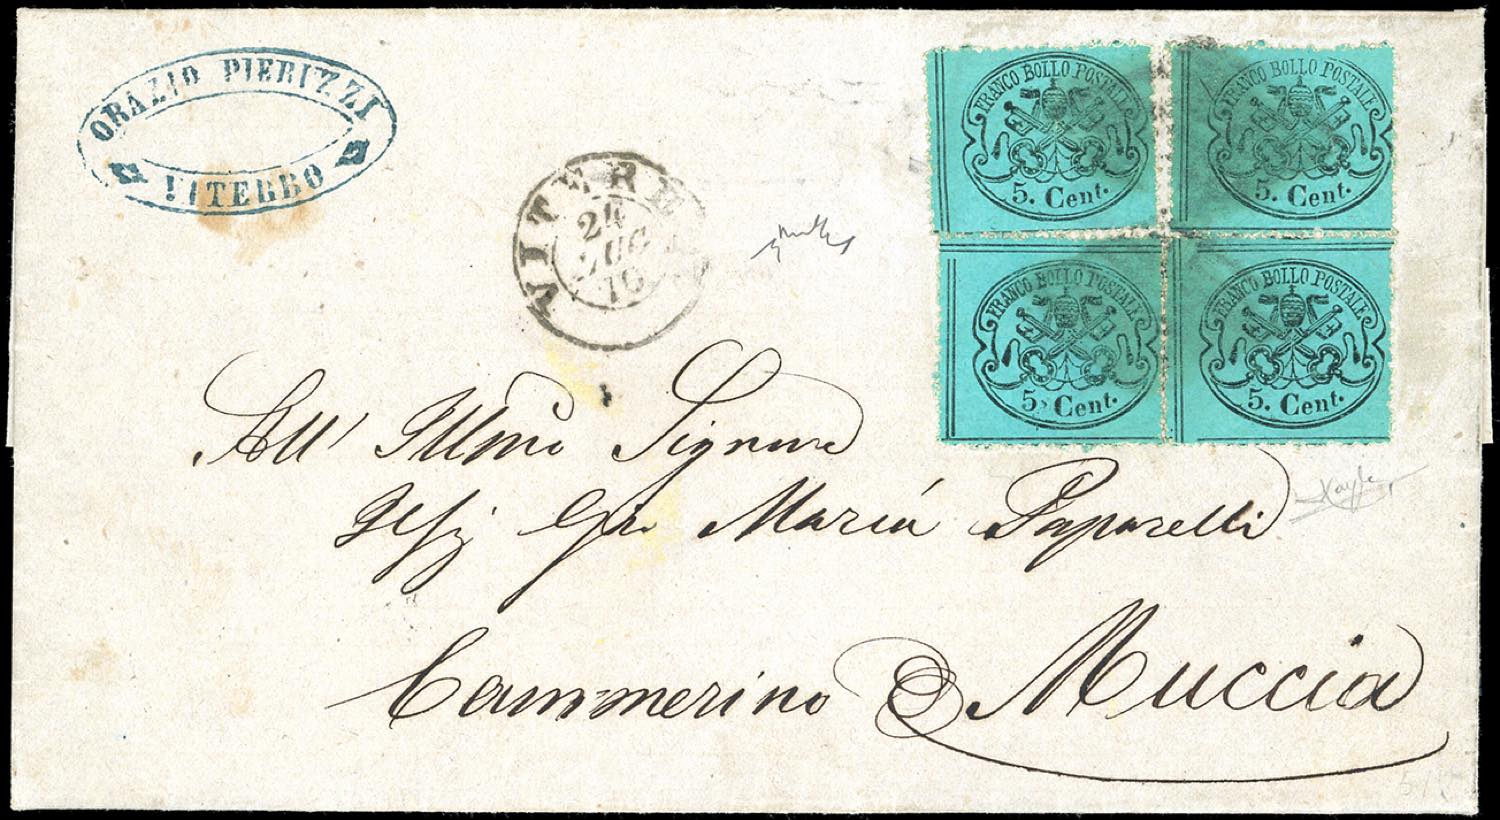 ORAZIO PIERUZZI
VITERBO
VITERB
24
LUG
70
FRANCO BOLLO POSTALE
5. Cent.
FRANCO BOLLO POSTALE
5. Cent.
FRANCO BOLLO POSTALE
5. Cent.
FRANCO BOLLO POSTALE
5. Cent.
All' Illmo Signore
Maria Paparelli
Cammerino Muccia